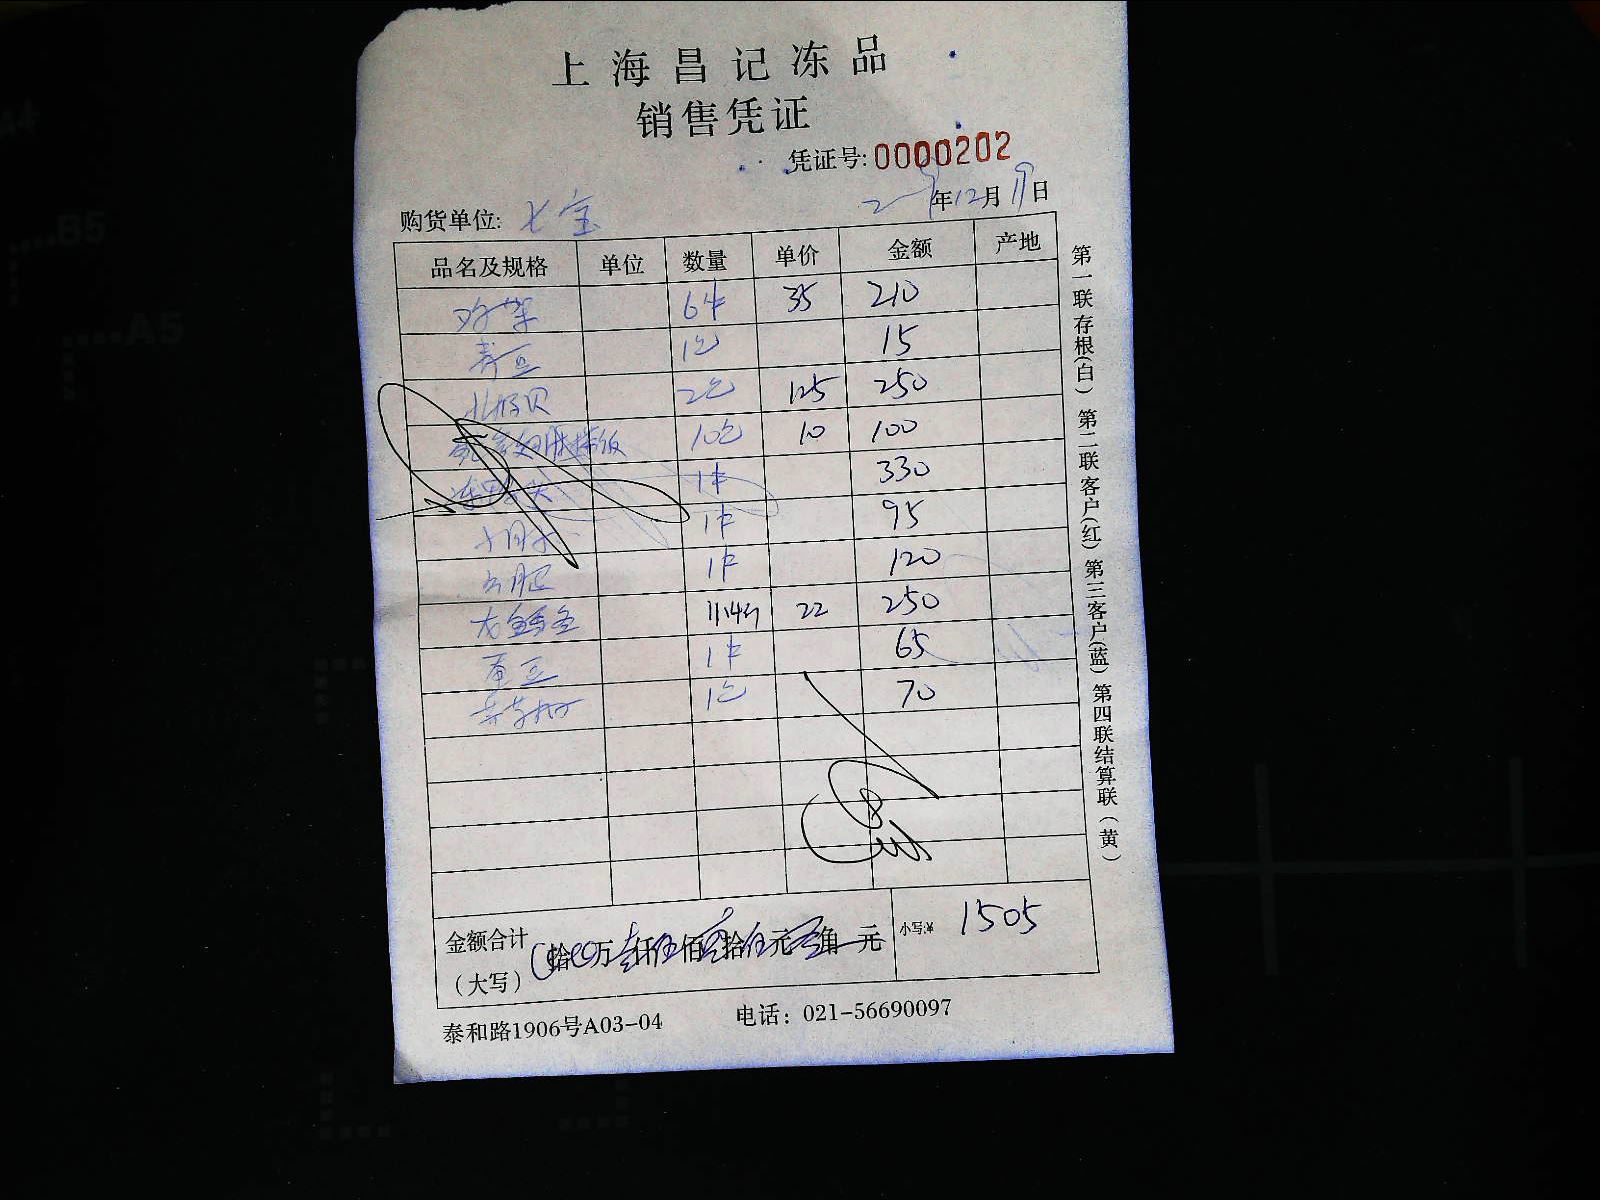 上海昌记冻品
销售凭证
凭证号:0000202
年12月19日
购货单位: 七宝
品名及规格 单位 数量 单价 金额 产地
鸡架 6件 35 210
青豆 1包 15
北极贝 2包 125 250
10包 10 100
1件 330
1件 95
1件 120
龙鳕鱼 22 250
1件 65
1包 70
金额合计
(大写) 拾 万 仟 佰 拾 元 角 元 小写:¥ 1505
泰和路1906号A03-04 电话: 021-56690097
第一联存根(白) 第二联客户(红) 第三客户(蓝) 第四联结算联(黄)